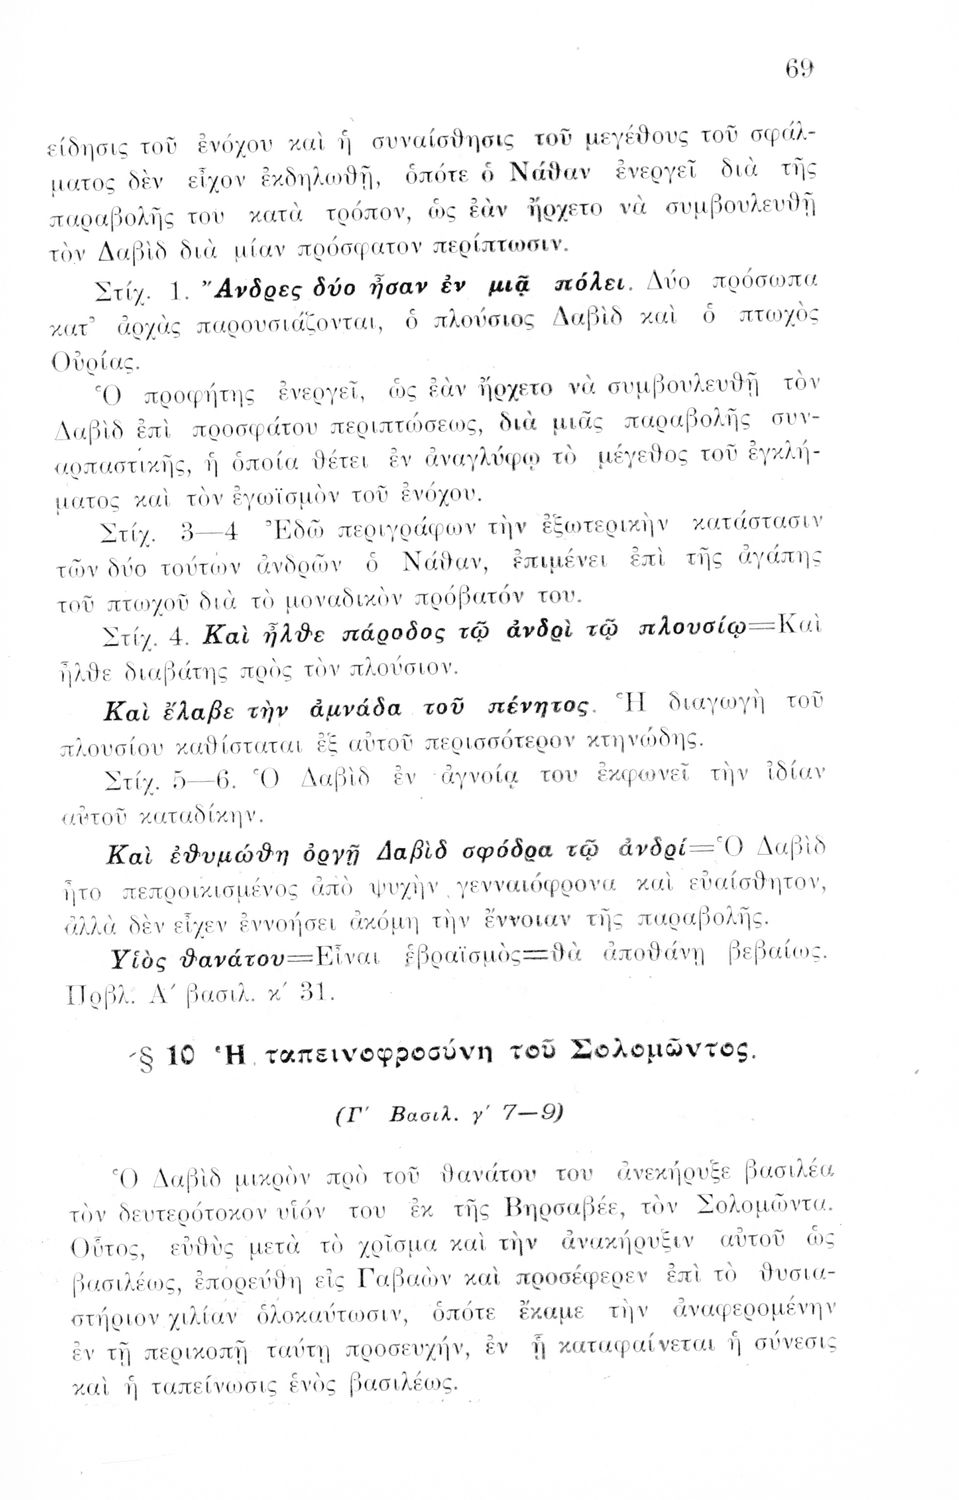 69
είδησις τοῦ ἐνόχου καὶ ἡ συναίσθησις τοῦ μεγέθους τοῦ σφάλ-
ματος δὲν εἶχον ἐκδηλωθῆ, ὁπότε ὁ Νάθαν ἐνεργεῖ διὰ τῆς
παραβολῆς του κατὰ τρόπον, ὡς ἐὰν ἤρχετο νὰ συμβουλευθῆ
τὸν Δαβὶδ διὰ μίαν πρόσφατον περίπτωσιν.
Στίχ. 1. Ἄνδρες δύο ἦσαν ἐν μιᾷ πόλει. Δύο πρόσωπα
κατ' ἀρχὰς παρουσιάζονται, ὁ πλούσιος Δαβὶδ καὶ ὁ πτωχὸς
Οὐρίας.
Ὁ προφήτης ἐνεργεῖ, ὡς ἐὰν ἤρχετο νὰ συμβουλευθῆ τὸν
Δαβὶδ ἐπὶ προσφάτου περιπτώσεως, διὰ μιᾶς παραβολῆς συν-
αρπαστικῆς, ἡ ὁποία θέτει ἐν ἀναγλύφῳ τὸ μέγεθος τοῦ ἐγκλή-
ματος καὶ τὸν ἐγωϊσμὸν τοῦ ἐνόχου.
Στίχ. 3—4 Ἐδῶ περιγράφων τὴν ἐξωτερικὴν κατάστασιν
τῶν δύο τούτων ἀνδρῶν ὁ Νάθαν, ἐπιμένει ἐπὶ τῆς ἀγάπης
τοῦ πτωχοῦ διὰ τὸ μοναδικὸν πρόβατόν του.
Στίχ. 4. Καὶ ἦλθε πάροδος τῷ ἀνδρὶ τῷ πλουσίῳ=Καὶ
ἦλθε διαβάτης πρὸς τὸν πλούσιον.
Καὶ ἔλαβε τὴν ἀμνάδα τοῦ πένητος. Ἡ διαγωγὴ τοῦ
πλουσίου καθίσταται ἐξ αὐτοῦ περισσότερον κτηνώδης.
Στίχ. 5—6. Ὁ Δαβὶδ ἐν ἀγνοίᾳ του ἐκφωνεῖ τὴν ἰδίαν
αὐτοῦ καταδίκην.
Καὶ ἐθυμώθη ὀργῇ Δαβὶδ σφόδρα τῷ ἀνδρί=Ὁ Δαβὶδ
ἦτο πεπροικισμένος ἀπὸ ψυχὴν γενναιόφρονα καὶ εὐαίσθητον,
ἀλλὰ δὲν εἶχεν ἐννοήσει ἀκόμη τὴν ἔννοιαν τῆς παραβολῆς.
Υἱὸς θανάτου=Εἶναι ἑβραϊσμὸς=θὰ ἀποθάνῃ βεβαίως.
Πρβλ. Α΄ βασιλ. κ΄ 31.
§ 10 Ἡ ταπεινοφροσύνη τοῦ Σολομῶντος.
(Γ΄ Βασιλ. γ΄ 7—9)
Ὁ Δαβὶδ μικρὸν πρὸ τοῦ θανάτου του ἀνεκήρυξε βασιλέα
τὸν δευτερότοκον υἱόν του ἐκ τῆς Βηρσαβέε, τὸν Σολομῶντα.
Οὗτος, εὐθὺς μετὰ τὸ χρῖσμα καὶ τὴν ἀνακήρυξιν αὐτοῦ ὡς
βασιλέως, ἐπορεύθη εἰς Γαβαὼν καὶ προσέφερεν ἐπὶ τὸ θυσια-
στήριον χιλίαν ὁλοκαύτωσιν, ὁπότε ἔκαμε τὴν ἀναφερομένην
ἐν τῇ περικοπῇ ταύτῃ προσευχήν, ἐν ᾗ καταφαίνεται ἡ σύνεσις
καὶ ἡ ταπείνωσις ἑνὸς βασιλέως.